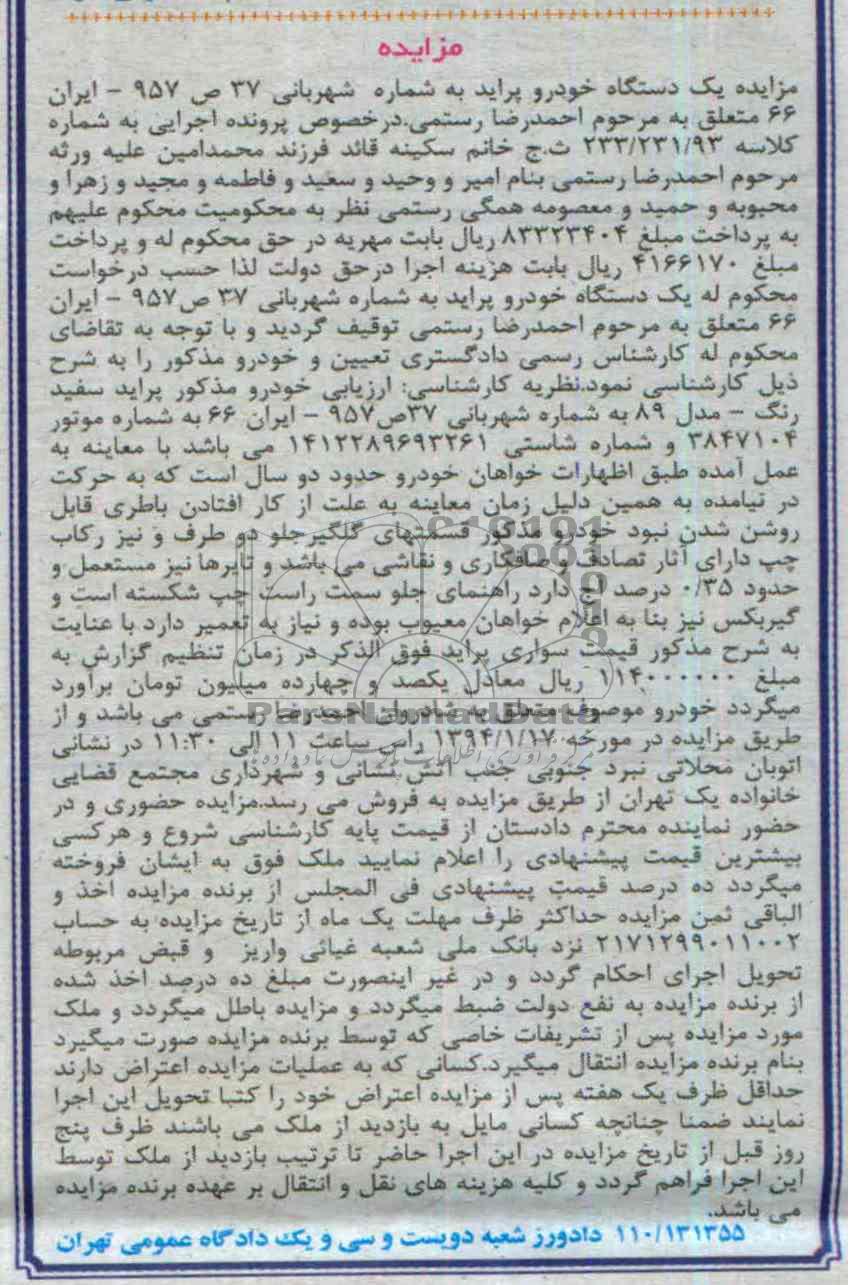 مزایده
مزایده یک دستگاه خودرو پراید به شماره شهربانی ۳۷ ص ۹۵۷ - ایران
۶۶ متعلق به مرحوم احمدرضا رستمی.درخصوص پرونده اجرایی به شماره
کلاسه ۲۳۳/۲۳۱/۹۳ ث.ج خانم سکینه قائد فرزند محمدامین علیه ورثه
مرحوم احمدرضا رستمی بنام امیر و وحید و سعید و فاطمه و مجید و زهرا و
محبوبه و حمید و معصومه همگی رستمی نظر به محکومیت محکوم علیهم
به پرداخت مبلغ ۸۳۳۲۳۴۰۴ ریال بابت مهریه در حق محکوم له و پرداخت
مبلغ ۴۱۶۶۱۷۰ ریال بابت هزینه اجرا درحق دولت لذا حسب درخواست
محکوم له یک دستگاه خودرو پراید به شماره شهربانی ۳۷ ص۹۵۷ - ایران
۶۶ متعلق به مرحوم احمدرضا رستمی توقیف گردید و با توجه به تقاضای
محکوم له کارشناس رسمی دادگستری تعیین و خودرو مذکور را به شرح
ذیل کارشناسی نمود.نظریه کارشناسی: ارزیابی خودرو مذکور پراید سفید
رنگ - مدل ۸۹ به شماره شهربانی ۳۷ص۹۵۷ - ایران ۶۶ به شماره موتور
۳۸۴۷۱۰۴ و شماره شاستی ۱۴۱۲۲۸۹۶۹۳۲۶۱ می باشد با معاینه به
عمل آمده طبق اظهارات خواهان خودرو حدود دو سال است که به حرکت
در نیامده به همین دلیل زمان معاینه به علت از کار افتادن باطری قابل
روشن شدن نبود خودرو مذکور قسمتهای گلگیرجلو دو طرف و نیز رکاب
چپ دارای آثار تصادف و صافکاری و نقاشی می باشد و تایرها نیز مستعمل و
حدود ۰/۳۵ درصد آج دارد راهنمای جلو سمت راست چپ شکسته است و
گیربکس نیز بنا به اعلام خواهان معیوب بوده و نیاز به تعمیر دارد با عنایت
به شرح مذکور قیمت سواری پراید فوق الذکر در زمان تنظیم گزارش به
مبلغ ۱۱۴۰۰۰۰۰۰ ریال معادل یکصد و چهارده میلیون تومان برآورد
میگردد خودرو موصوف متعلق به شادروان احمدرضا رستمی می باشد و از
طریق مزایده در مورخه ۱۳۹۴/۱/۱۷ راس ساعت ۱۱ الی ۱۱:۳۰ در نشانی
اتوبان محلاتی نبرد جنوبی جنب آتش نشانی و شهرداری مجتمع قضایی
خانواده یک تهران از طریق مزایده به فروش می رسد.مزایده حضوری و در
حضور نماینده محترم دادستان از قیمت پایه کارشناسی شروع و هرکسی
بیشترین قیمت پیشنهادی را اعلام نمایید ملک فوق به ایشان فروخته
میگردد ده درصد قیمت پیشنهادی فی المجلس از برنده مزایده اخذ و
الباقی ثمن مزایده حداکثر ظرف مهلت یک ماه از تاریخ مزایده به حساب
۲۱۷۱۲۹۹۰۱۱۰۰۲ نزد بانک ملی شعبه غیائی واریز و قبض مربوطه
تحویل اجرای احکام گردد و در غیر اینصورت مبلغ ده درصد اخذ شده
از برنده مزایده به نفع دولت ضبط میگردد و مزایده باطل میگردد و ملک
مورد مزایده پس از تشریفات خاصی که توسط برنده مزایده صورت میگیرد
بنام برنده مزایده انتقال میگیرد.کسانی که به عملیات مزایده اعتراض دارند
حداقل ظرف یک هفته پس از مزایده اعتراض خود را کتبا تحویل این اجرا
نمایند ضمنا چنانچه کسانی مایل به بازدید از ملک می باشند ظرف پنج
روز قبل از تاریخ مزایده در این اجرا حاضر تا ترتیب بازدید از ملک توسط
این اجرا فراهم گردد و کلیه هزینه های نقل و انتقال بر عهده برنده مزایده
می باشد.
۱۱۰/۱۳۱۳۵۵ دادورز شعبه دویست و سی و یک دادگاه عمومی تهران
ParsNamadData